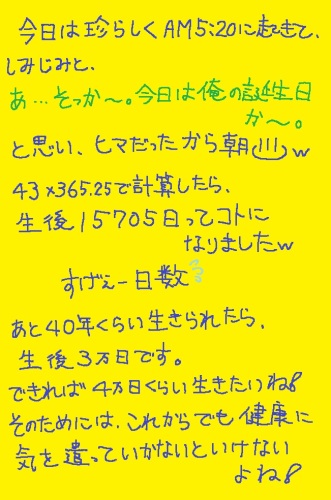 今日は珍らしくAM5:20に起きて、
しみじみと、
あ…そっか～。今日は俺の誕生日
か～。
と思い、ヒマだったから朝川w
43×365.25で計算したら、
生後15705日ってコトに
なりましたw
すげぇー日数
あと40年くらい生きられたら、
生後3万日です。
できれば4万日くらい生きたいね!
そのためには、これからでも健康に
気を遣っていかないといけない
よね!